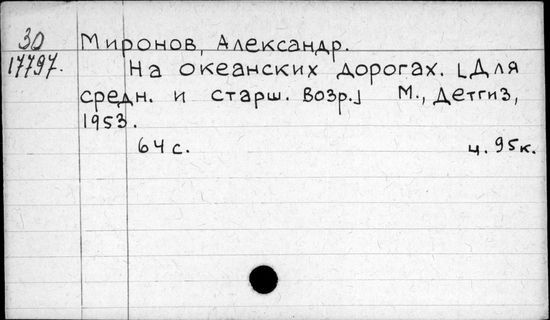 30
17797.
Миронов, Александр.
На океанских дорогах. [Для
средн. и старш. возр.] М., Детгиз,
1953.
64 с. ц. 95 к.